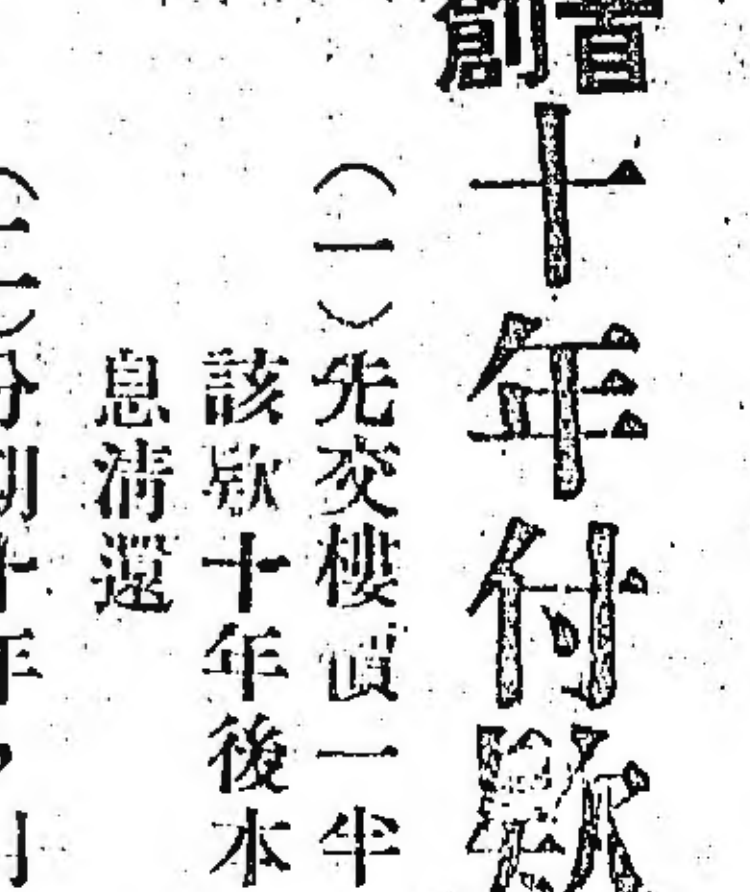 創
十年付欵
(一)先交樓價一半
該欵十年後本
息清還
(二)分期十年